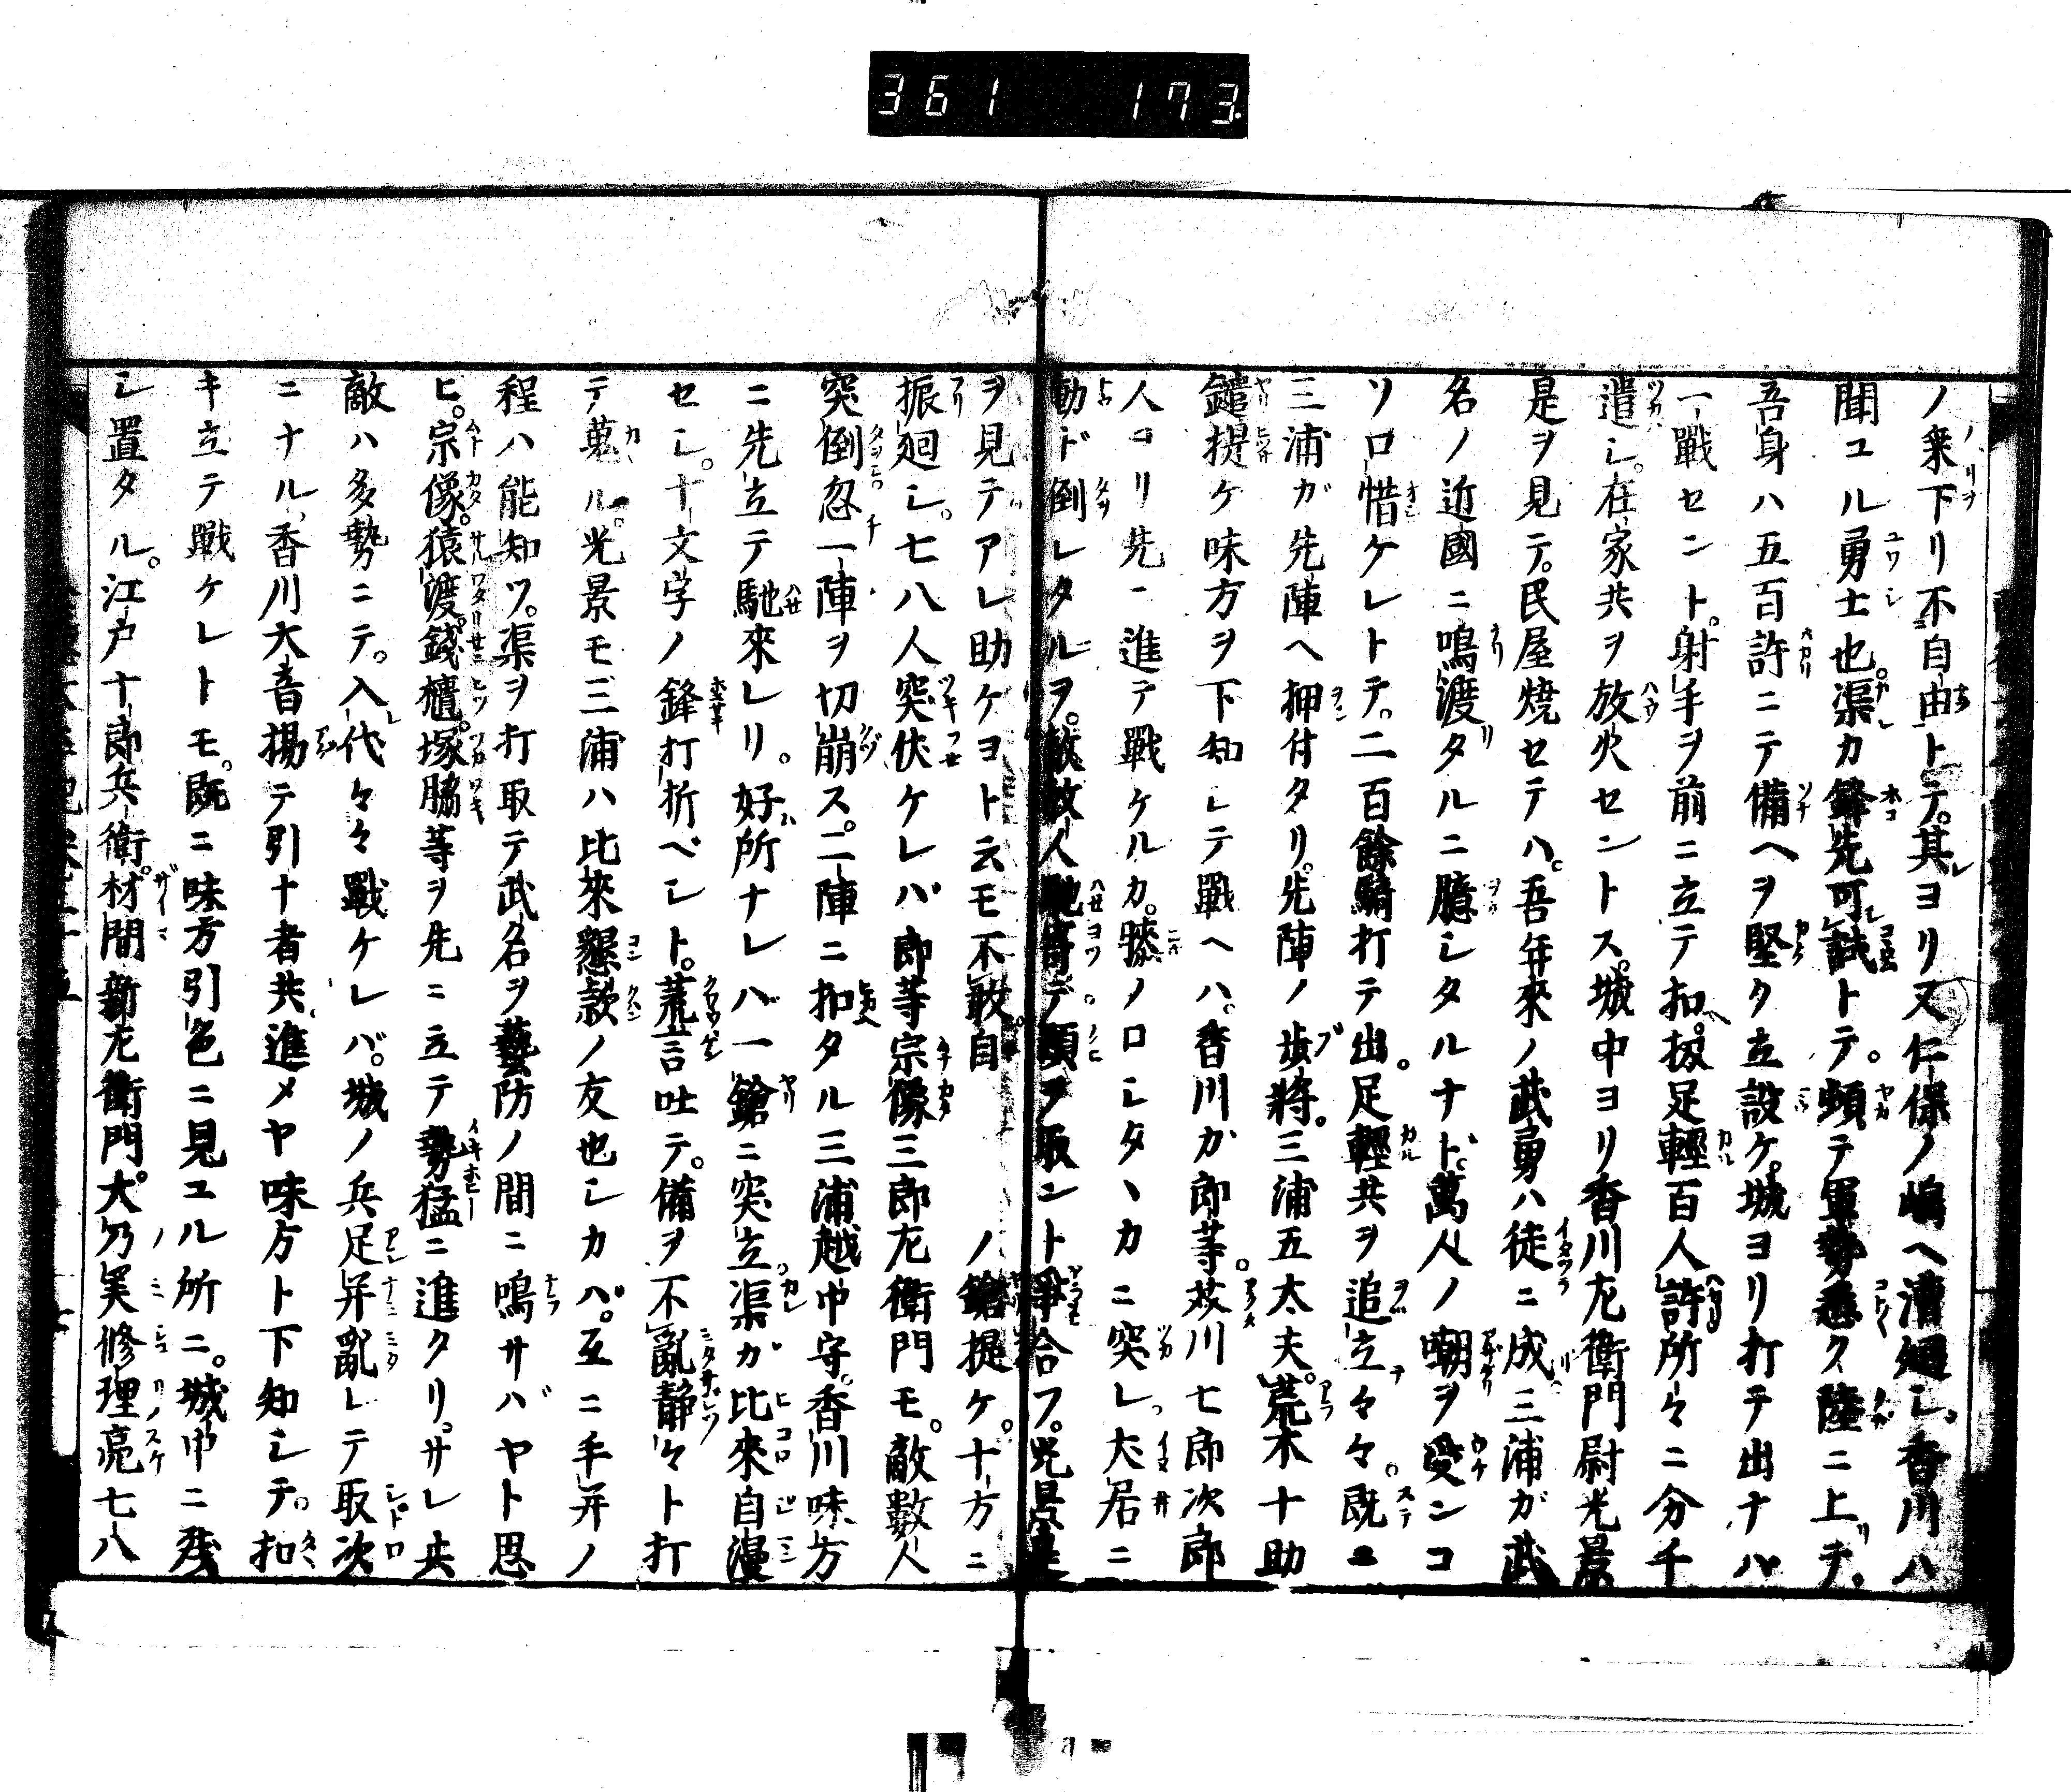 361 173
ノ乗下リ不自由トテ。其ヨリ又仁保ノ嶋ヘ漕廻シ。香川ハ
聞ユル勇士也。渠カ鋒先可試トテ。頓テ軍勢悉ク陸ニ上リテ。
吾身ハ五百許ニテ備ヘヲ堅ク立設ケ。城ヨリ打チ出ナハ
一戰セント。射手ヲ前ニ立テ扣。扨足輕百人許所々ニ分千
遣シ。在家共ヲ放火セントス。城中ヨリ香川左衛門尉光景
是ヲ見テ。民屋燒セテハ。吾年來ノ武勇ハ徒ニ成三浦ガ武
名ノ近國ニ鳴渡タルニ臆シタルナド。萬人ノ嘲ヲ受ンコ
ソ口惜ケレトテ。二百餘騎打テ出。足輕共ヲ追立々々。既ニ
三浦ガ先陣ヘ押付タリ。先陣ノ歩將。三浦五太夫。荒木十助
鑓提ケ味方ヲ下知シテ戰ヘハ。香川カ郎等。荻川七郎次郎
人ヨリ先ニ進テ戰ケルカ。膝ノ口シタヽカニ突レ。大居ニ
動ド倒レタルヲ。敵數人馳寄テ頸ヲ取ント爭合フ。光景是
ヲ見テアレ助ケヨト云モ不敢。自ノ鎗提ケ。十方ニ
振廻シ。七八人突伏ケレバ郎等宗像三郎左衛門モ。敵數人
突倒忽一陣ヲ切崩ス。二陣ニ扣タル三浦越中守。香川味方
ニ先立テ馳來レリ。好所ナレバ一鎗ニ突立。渠ガ比來自漫
セシ。十文字ノ鋒打折ベシト。荒言吐テ。備ヲ不亂靜々ト打
テ蒐ル。光景モ三浦ハ比來懇款ノ友也シカバ。互ニ手并ノ
程ハ能知ツ。渠ヲ打取テ武名ヲ藝防ノ間ニ鳴サバヤト思
ヒ。宗像。猿渡。錢櫃。塚脇等ヲ先ニ立テ勢猛ニ進タリ。サレ共
敵ハ多勢ニテ。入代々々戰ケレバ。城ノ兵足并亂レテ取次
ニナル。香川大音揚テ引ナ者共。進メヤ味方ト下知シテ。扣
キ立テ戰ケレトモ。既ニ味方引色ニ見ユル所ニ。城中ニ殘
シ置タル。江戸十郎兵衛。材間新左衛門。大乃美修理亮七八